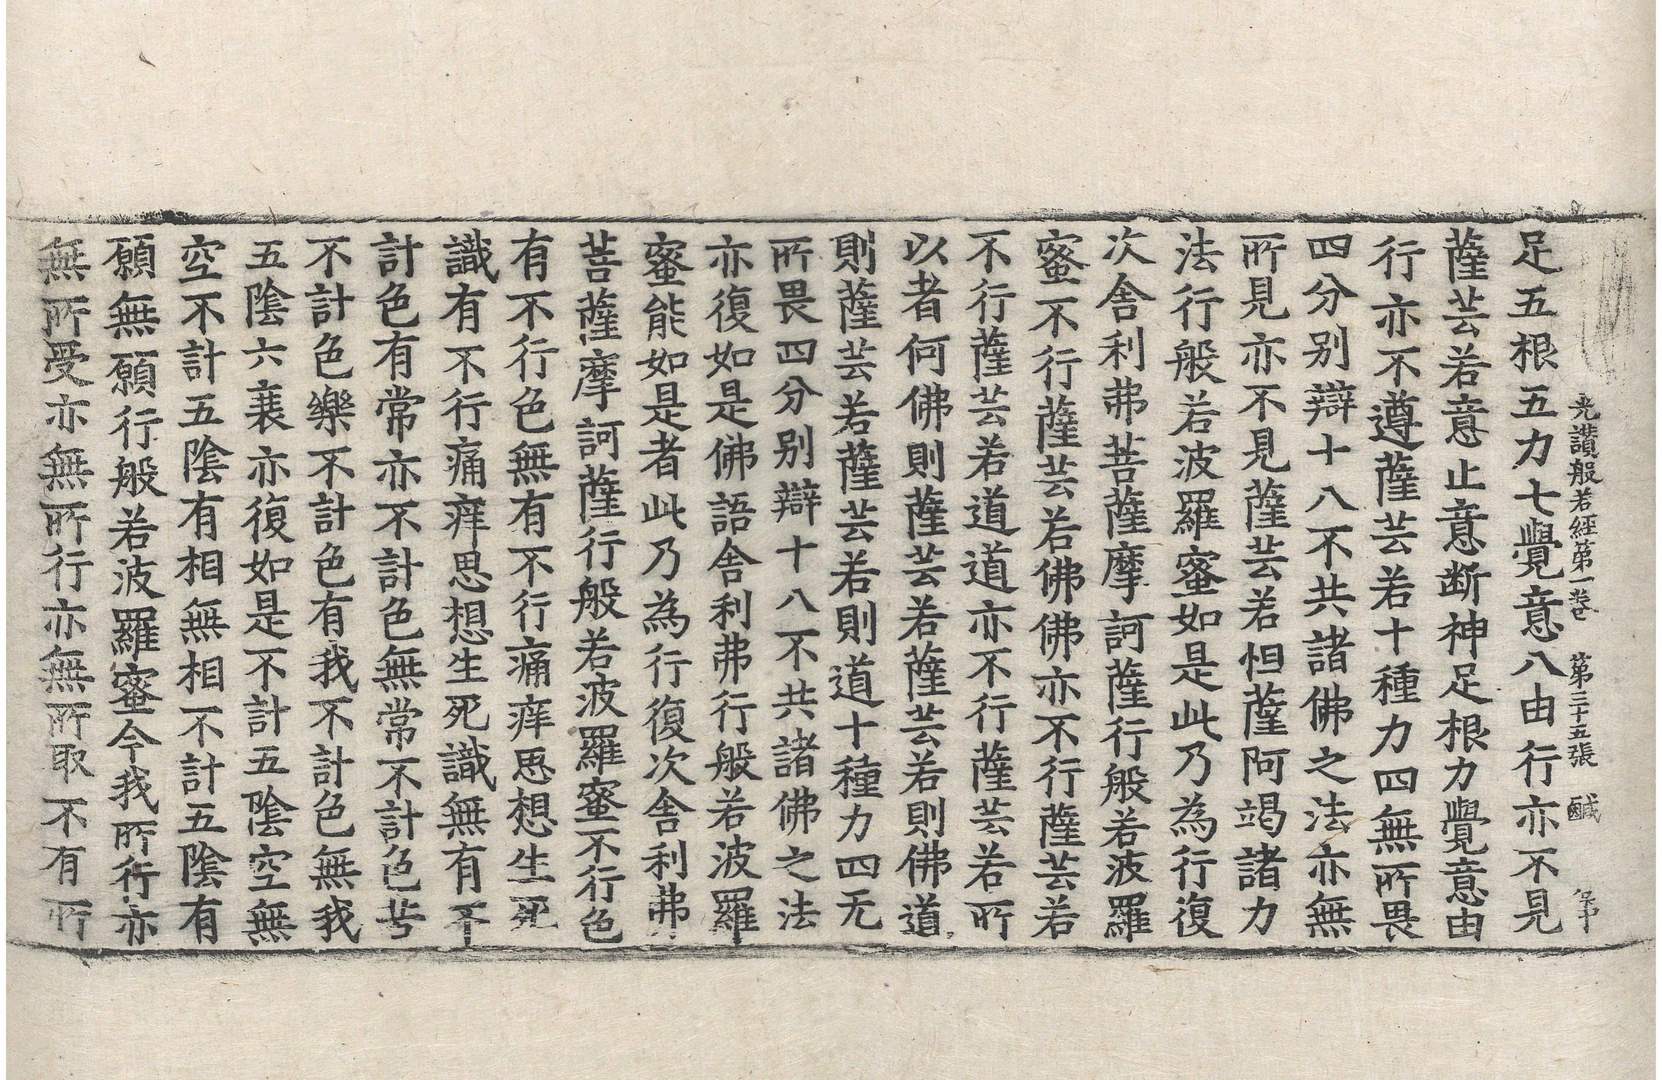 光讃般若經第一卷 第三十五張 鹹
足五根五力七覺意八由行亦不見
薩芸若意止意断神足根力覺意由
行亦不遵薩芸若十種力四無所畏
四分别辯十八不共諸佛之法亦無
所見亦不見薩芸若怛薩阿竭諸力
法行般若波羅蜜如是此乃為行復
次舎利弗菩薩摩訶薩行般若波羅
蜜不行薩芸若佛佛亦不行薩芸若
不行薩芸若道道亦不行薩芸若所
以者何佛則薩芸若薩芸若則佛道
則薩芸若薩芸若則道十種力四无
所畏四分别辯十八不共諸佛之法
亦復如是佛語舎利弗行般若波羅
蜜能如是者此乃為行復次舎利弗
菩薩摩訶薩行般若波羅蜜不行色
有不行色無有不行痛痒思想生死
識有不行痛痒思想生死識無有不
計色有常亦不計色無常不計色苦
不計色樂不計色有我不計色無我
五陰六衰亦復如是不計五陰空無
空不計五陰有相無相不計五陰有
願無願行般若波羅蜜今我所行亦
無所受亦無所行亦無所取不有所